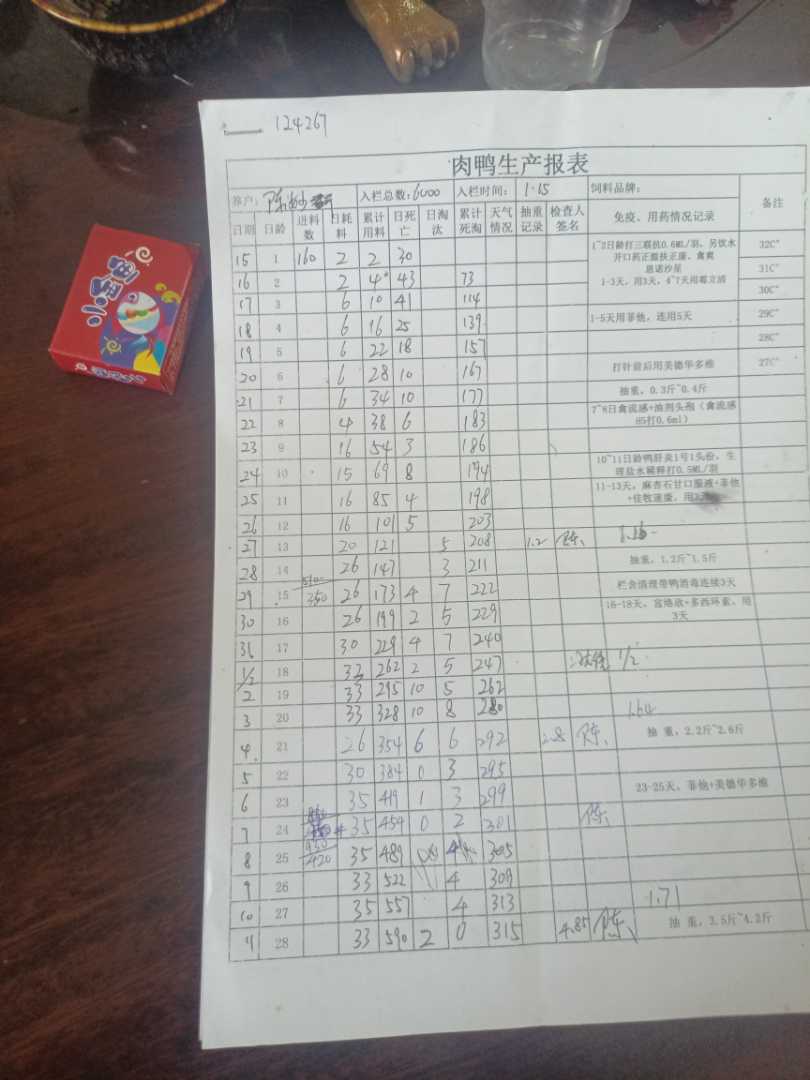 124267
肉鸭生产报表
养户: 陈 入栏总数: 6000 入栏时间: 1.15 饲料品牌:
日期 日龄 进料数 日耗料 累计用料 日死亡 日淘汰 累计死淘 天气情况 抽重记录 检查人签名 免疫、用药情况记录 备注
15 1 160 2 2 30 1~2日龄打三联抗0.6ML/羽、另饮水 32C°
开口药正服扶正康、禽爽
16 2 2 4 43 73 恩诺沙星 31C°
1-3天,用3天,4~7天用霉立清
17 3 6 10 41 114 30C°
18 4 6 16 25 139 1-5天用菲他,连用5天 29C°
19 5 6 22 18 157 28C°
20 6 6 28 10 167 打针前后用美德华多维 27C°
21 7 6 34 10 177 抽重,0.3斤~0.4斤
22 8 4 38 6 183 7~8日禽流感+油剂头孢(禽流感
H5打0.6ml)
23 9 16 54 3 186
24 10 15 69 8 194 10~11日龄鸭肝炎1号1头份,生
理盐水稀释打0.5ML/羽
25 11 16 85 4 198 11-13天,麻杏石甘口服液+菲他
+佳牧速康,用
26 12 16 101 5 203
27 13 20 121 5 208 1.2 陈
28 14 26 147 3 211 抽重,1.2斤~1.5斤
29 15 350 26 173 4 7 222 栏舍清理带鸭消毒连续3天
30 16 26 199 2 5 229 16-18天,富络欣+多西环素,用
3天
31 17 30 229 4 7 240
1/2 18 33 262 2 5 247 1/2
2 19 33 295 10 5 262
3 20 33 328 10 8 280 1.64
4 21 26 354 6 6 292 2.8 陈 抽 重,2.2斤~2.6斤
5 22 30 384 0 3 295
6 23 35 419 1 3 299 23-25天,菲他+美德华多维
7 24 35 454 0 2 301 陈
8 25 420 35 489 4 305
9 26 33 522 4 309
10 27 35 557 4 313 1.71
11 28 33 590 2 0 315 4.85 陈 抽 重,3.5斤~4.2斤
小金鱼